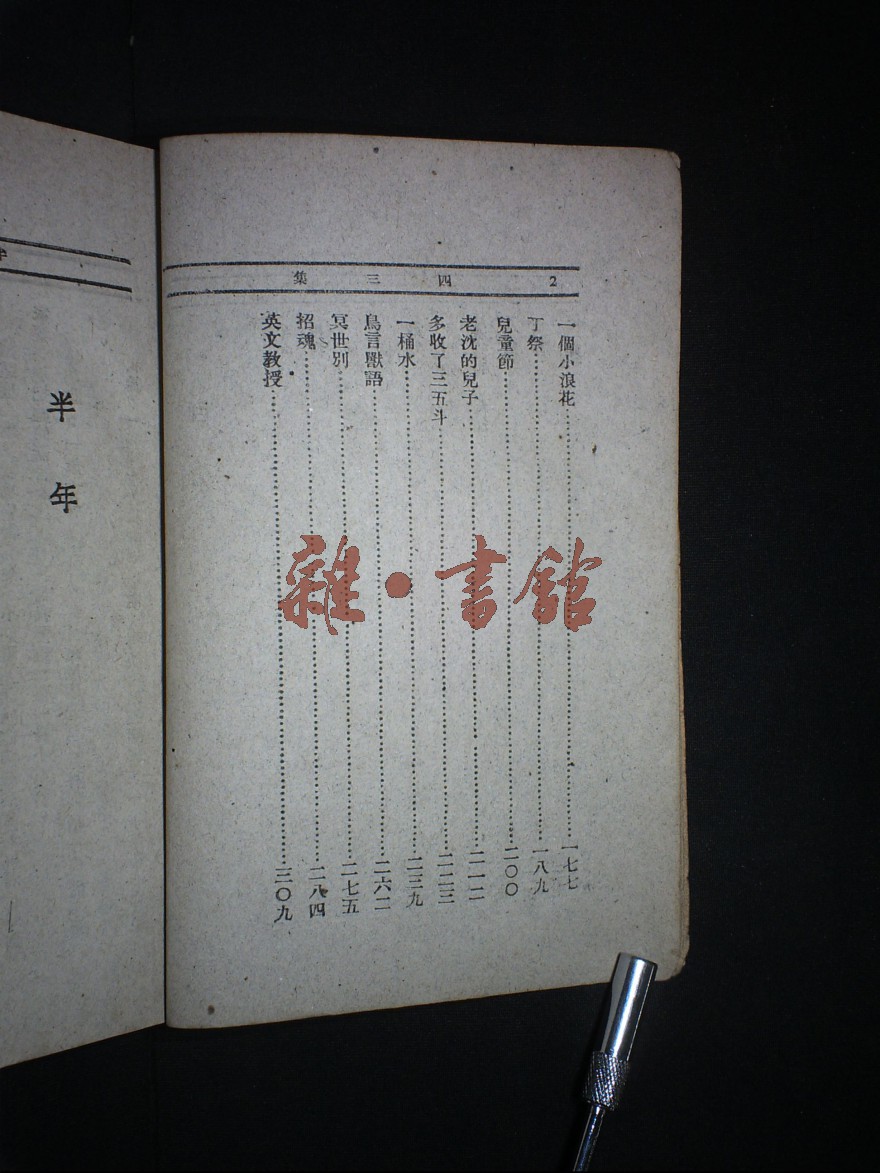 2 四三集
一個小浪花……一七七
丁祭……一八九
兒童節……二〇〇
老沈的兒子……二一二
多收了三五斗……二二三
一桶水……二三九
鳥言獸語……二六二
冥世別……二七五
招魂……二八四
英文教授……三〇九
半年
雜·書館